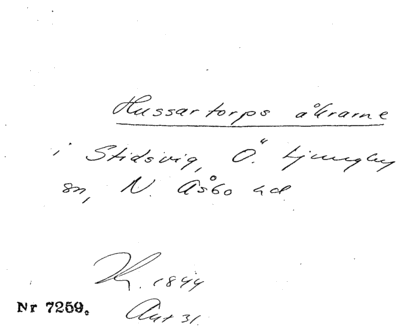 Hussartorps åkrarne
i Stidsvig, Ö. Ljungby
sn, N. Åsbo hd.
K. 1844
Akt 31.
Nr 7259.